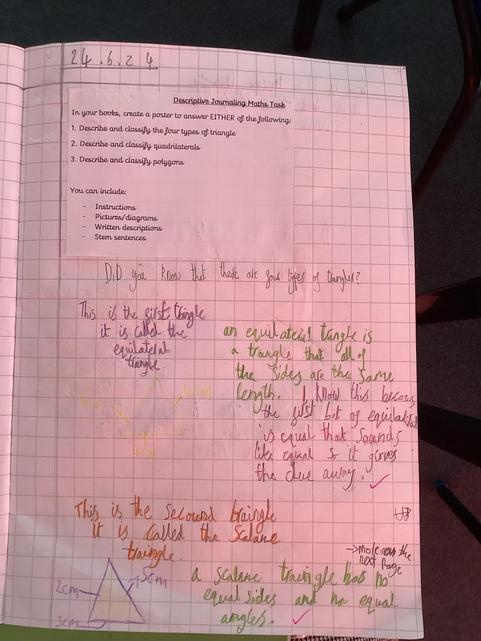 24.6.24
Descriptive Journaling Maths Task
In your books, create a poster to answer EITHER of the following:
1. Describe and classify the four types of triangle
2. Describe and classify quadrilaterals
3. Describe and classify polygons
You can include:
- Instructions
- Pictures/diagrams
- Written descriptions
- Stem sentences
DiD you know that there are four types of tiangles?
This is the first tringle
it is called the
equilateral
triangle.
an equilateral tangle is
a triangle that all of
the sides are the same
length. I know this becous
the first bit of equilateral
is equal that sounds
like equal so it gives
the clue away.
This is the second traingle
it is called the scalane
traingle.
→ more on the
next page
2cm
3cm
a scalane traingle has no
equal sides and no equal
angles.